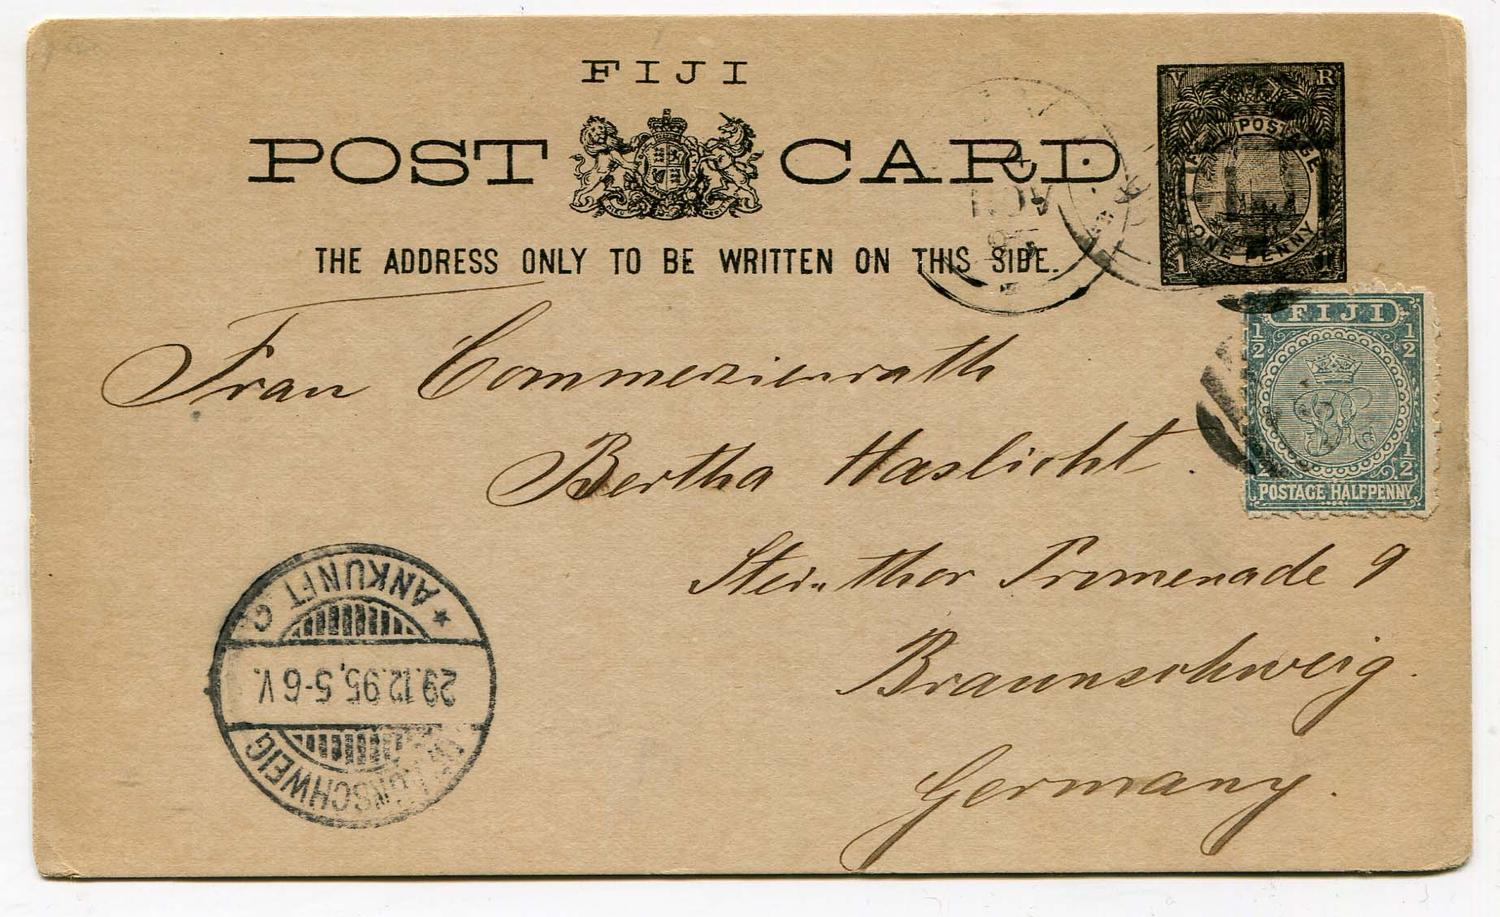 FIJI
POST CARD
THE ADDRESS ONLY TO BE WRITTEN ON THIS SIDE.
V R
POSTAGE
ONE PENNY
1 1
NOV
95
FIJI
1/2 1/2
1/2 1/2
POSTAGE HALFPENNY
Frau Commerzienrath
Bertha Haslicht.
Steinthor Promenade 9
Braunschweig.
Germany.
* ANKUNFT C.
29.12.95, 5-6 V.
BRAUNSCHWEIG